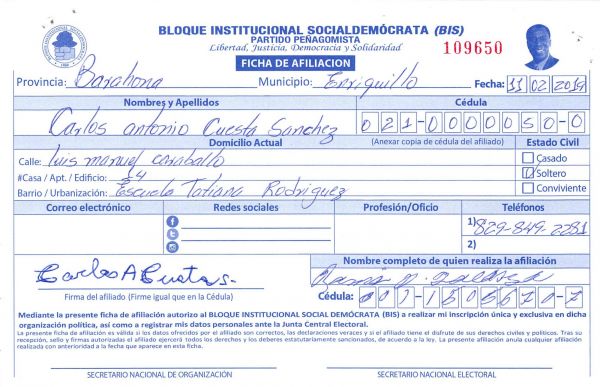 BLOQUE INSTITUCIONAL SOCIALDEMÓCRATA (BIS)
PARTIDO PEÑAGOMISTA
Libertad, Justicia, Democracia y Solidaridad
109650
FICHA DE AFILIACION
Provincia: Barahona Municipio: Enriquillo Fecha: 11 02 2019
Nombres y Apellidos Cédula
Carlos antonio Cuesta Sanchez 021-0000050-0
Domicilio Actual (Anexar copia de cédula del afiliado) Estado Civil
Calle: Luis manuel caraballo Casado
#Casa / Apt. / Edificio: 34 Soltero
Barrio / Urbanización: Escuela Tatiana Rodriguez Conviviente
Correo electrónico Redes sociales Profesión/Oficio Teléfonos
1) 829-849-2281
2)
Nombre completo de quien realiza la afiliación
Carlos A Cuesta S.
Firma del afiliado (Firme igual que en la Cédula) Cédula: 001-1505670-2
Mediante la presente ficha de afiliación autorizo al BLOQUE INSTITUCIONAL SOCIAL DEMÓCRATA (BIS) a realizar mi inscripción única y exclusiva en dicha
organización política, así como a registrar mis datos personales ante la Junta Central Electoral.
La presente ficha de afiliación es válida si los datos ofrecidos por el afiliado son correctos, las declaraciones veraces y si el afiliado tiene el disfrute de sus derechos civiles y políticos. Tras su
recepción, sello y firmas autorizadas el afiliado ejercerá todos los derechos y los deberes estatutariamente sancionados, de acuerdo a la ley. La presente afiliación anula cualquier afiliación
realizada con anterioridad a la fecha que aparece en esta ficha.
SECRETARIO NACIONAL DE ORGANIZACIÓN SECRETARIO NACIONAL ELECTORAL